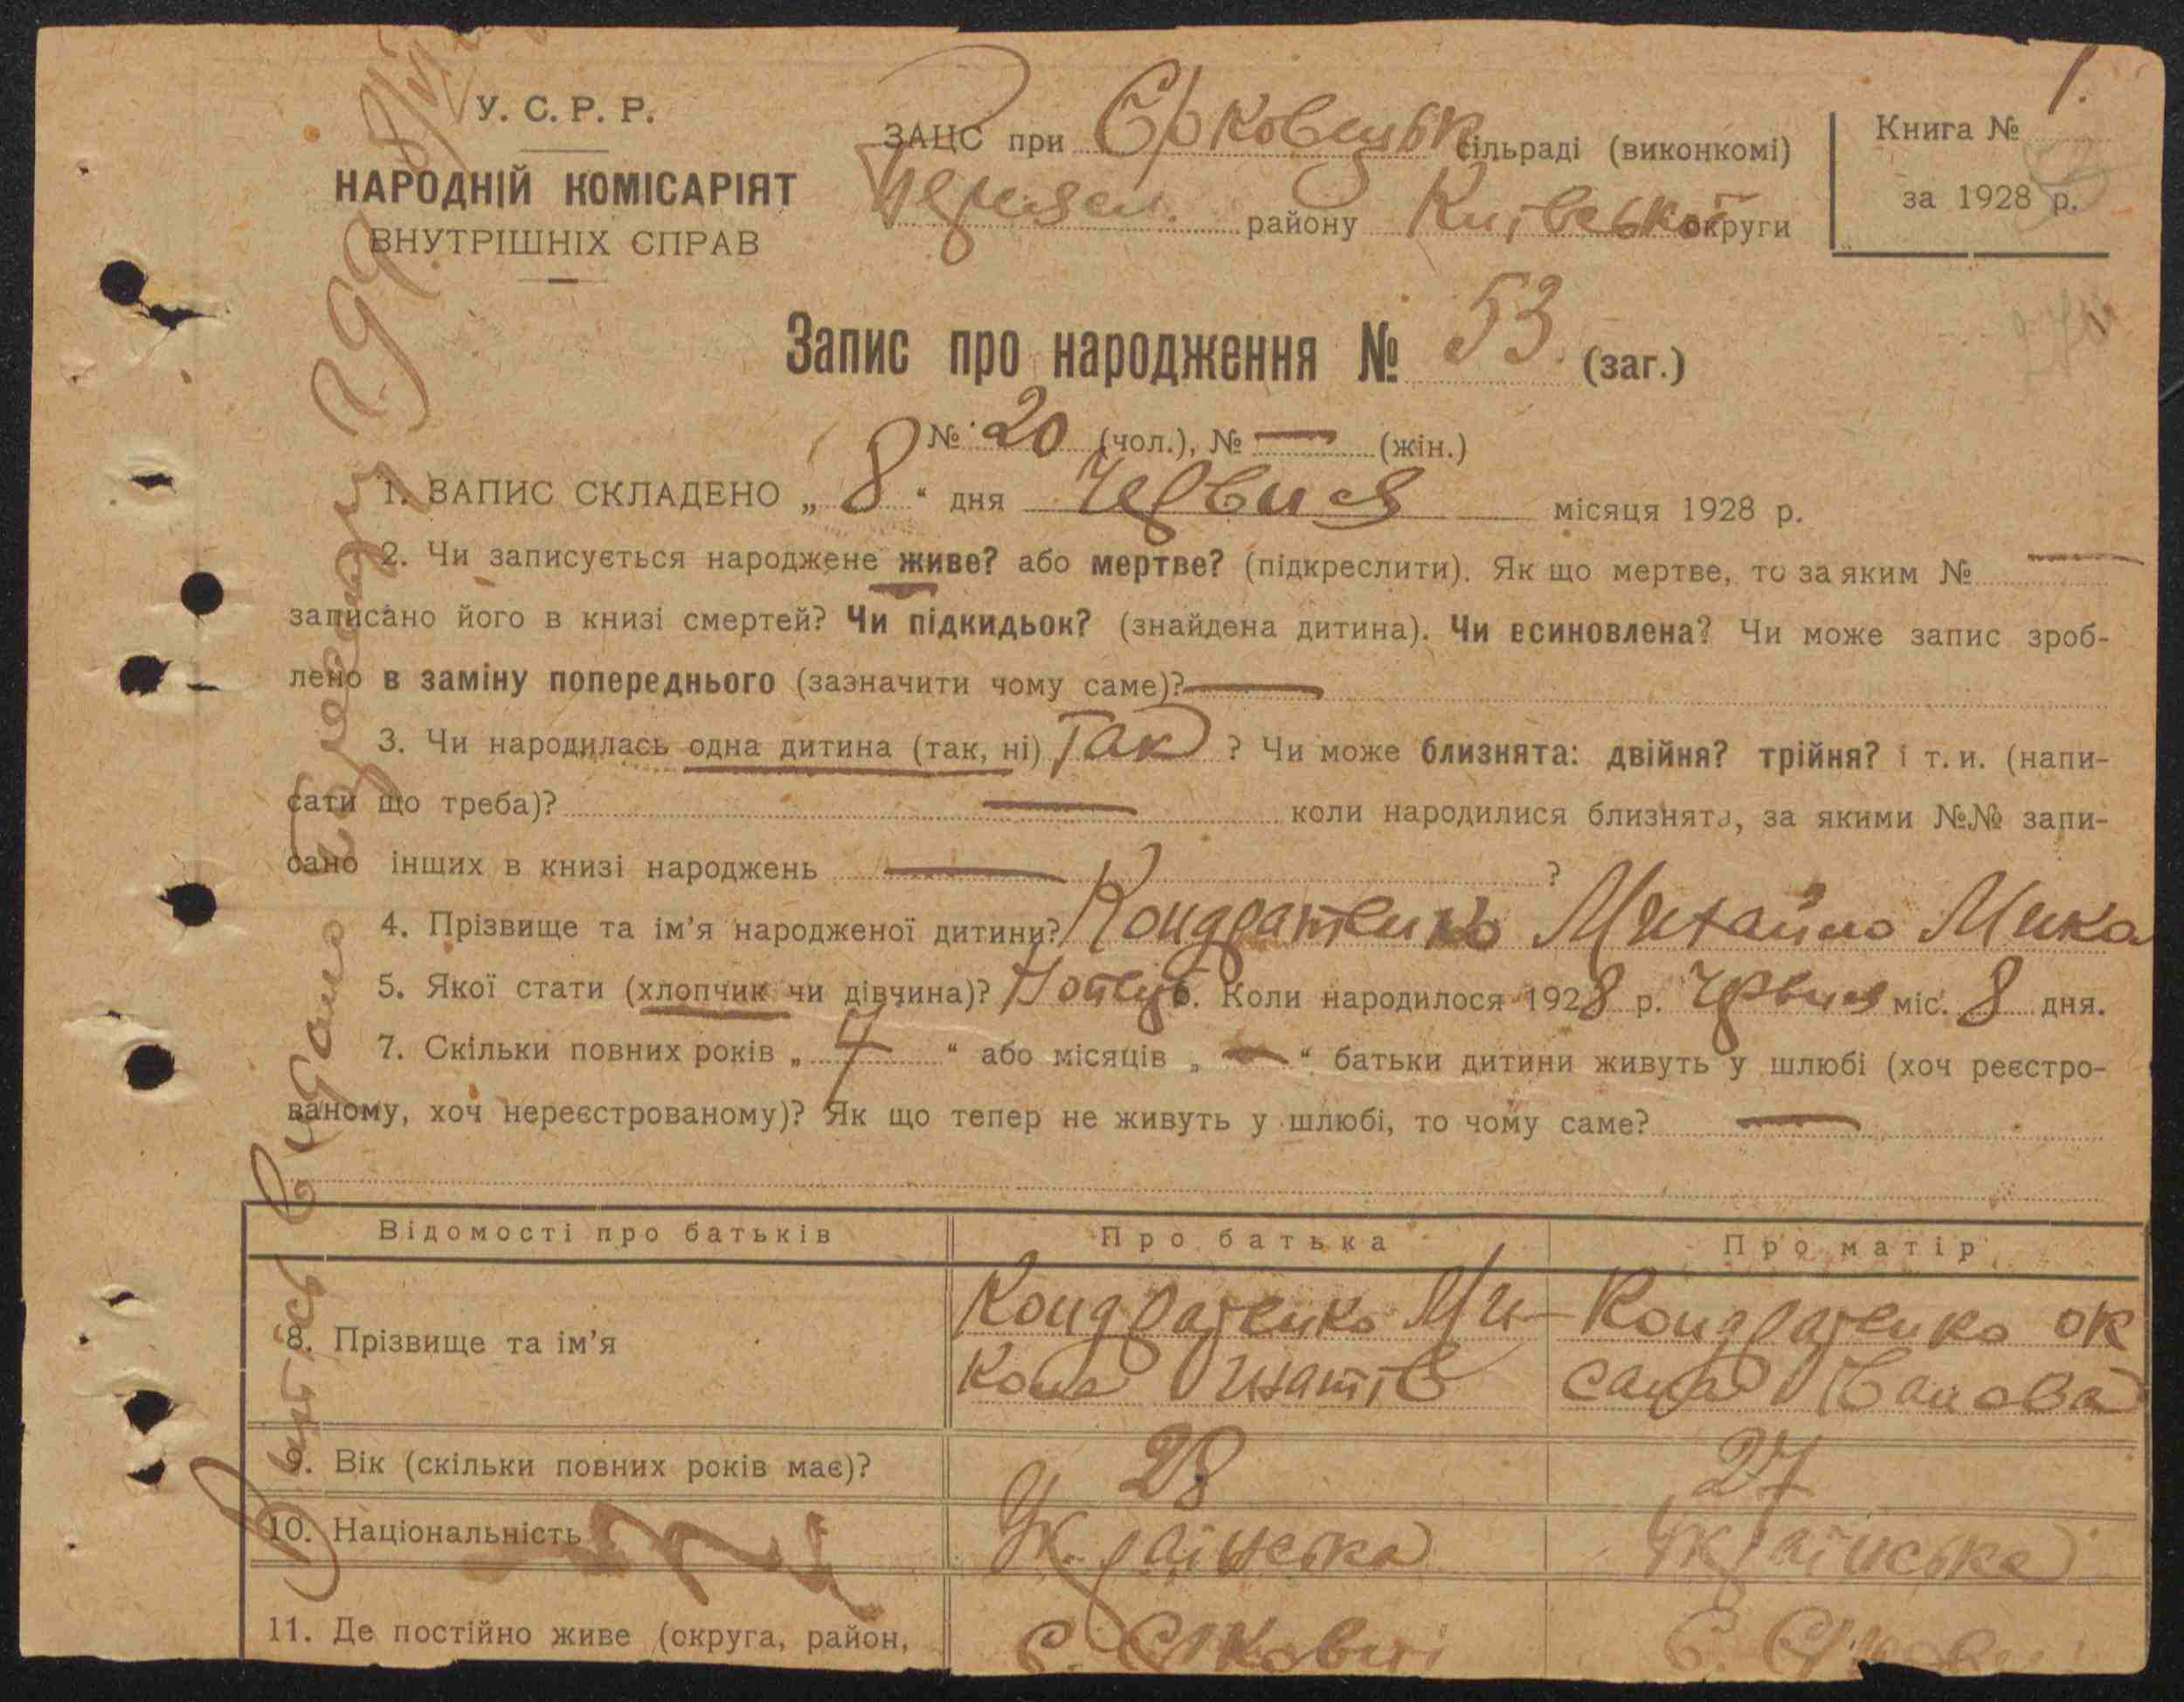 У. С. Р. Р.
НАРОДНІЙ КОМІСАРІЯТ
ВНУТРІШНІХ СПРАВ
ЗАЦС при Єрковецьк сільраді (виконкомі)
Переясл. району Київської округи
Книга № 1.
за 1928 р.
Запис про народження № 53 (заг.)
№ 20 (чол.), № — (жін.)
1. ЗАПИС СКЛАДЕНО „ 8 “ дня Червня місяця 1928 р.
2. Чи записується народжене живе? або мертве? (підкреслити). Як що мертве, то за яким № —
записано його в книзі смертей? Чи підкидьок? (знайдена дитина). Чи всиновлена? Чи може запис зроб-
лено в заміну попереднього (зазначити чому саме)? —
3. Чи народилась одна дитина (так, ні) Так ? Чи може близнята: двійня? трійня? і т. и. (напи-
сати що треба)? — коли народилися близнята, за якими №№ запи-
сано інших в книзі народжень — ?
4. Прізвище та ім’я народженої дитини? Кондратенко Михайло Мика
5. Якої стати (хлопчик чи дівчина)? Хопець. Коли народилося 1928 р. Червня міс. 8 дня.
7. Скільки повних років „ 7 “ або місяців „ — “ батьки дитини живуть у шлюбі (хоч реєстро-
ваному, хоч нереєстрованому)? Як що тепер не живуть у шлюбі, то чому саме? —
Відомості про батьків Про батька Про матір
8. Прізвище та ім’я Кондратенко Ми- Кондратенко Ок
кола Гнатів сана Іванова
9. Вік (скільки повних років має)? 28 27
10. Національність Українська Українська
11. Де постійно живе (округа, район, с. Єрковці с. Єрковці
Витись видано
299